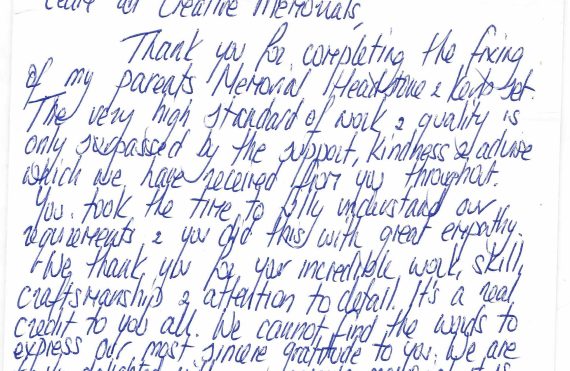 all Creative Memorials,
Thank you for completing the fixing
of my parents Memorial Headstone & Kerb set.
The very high standard of work & quality is
only surpassed by the support, kindness & advise
which we have received from you throughout.
You took the time to fully understand our
requirements & you did this with great empathy.
We thank you for your incredible work, skill,
craftsmanship & attention to detail. It's a real
credit to you all. We cannot find the words to
express our most sincere gratitude to you. We are
delighted with